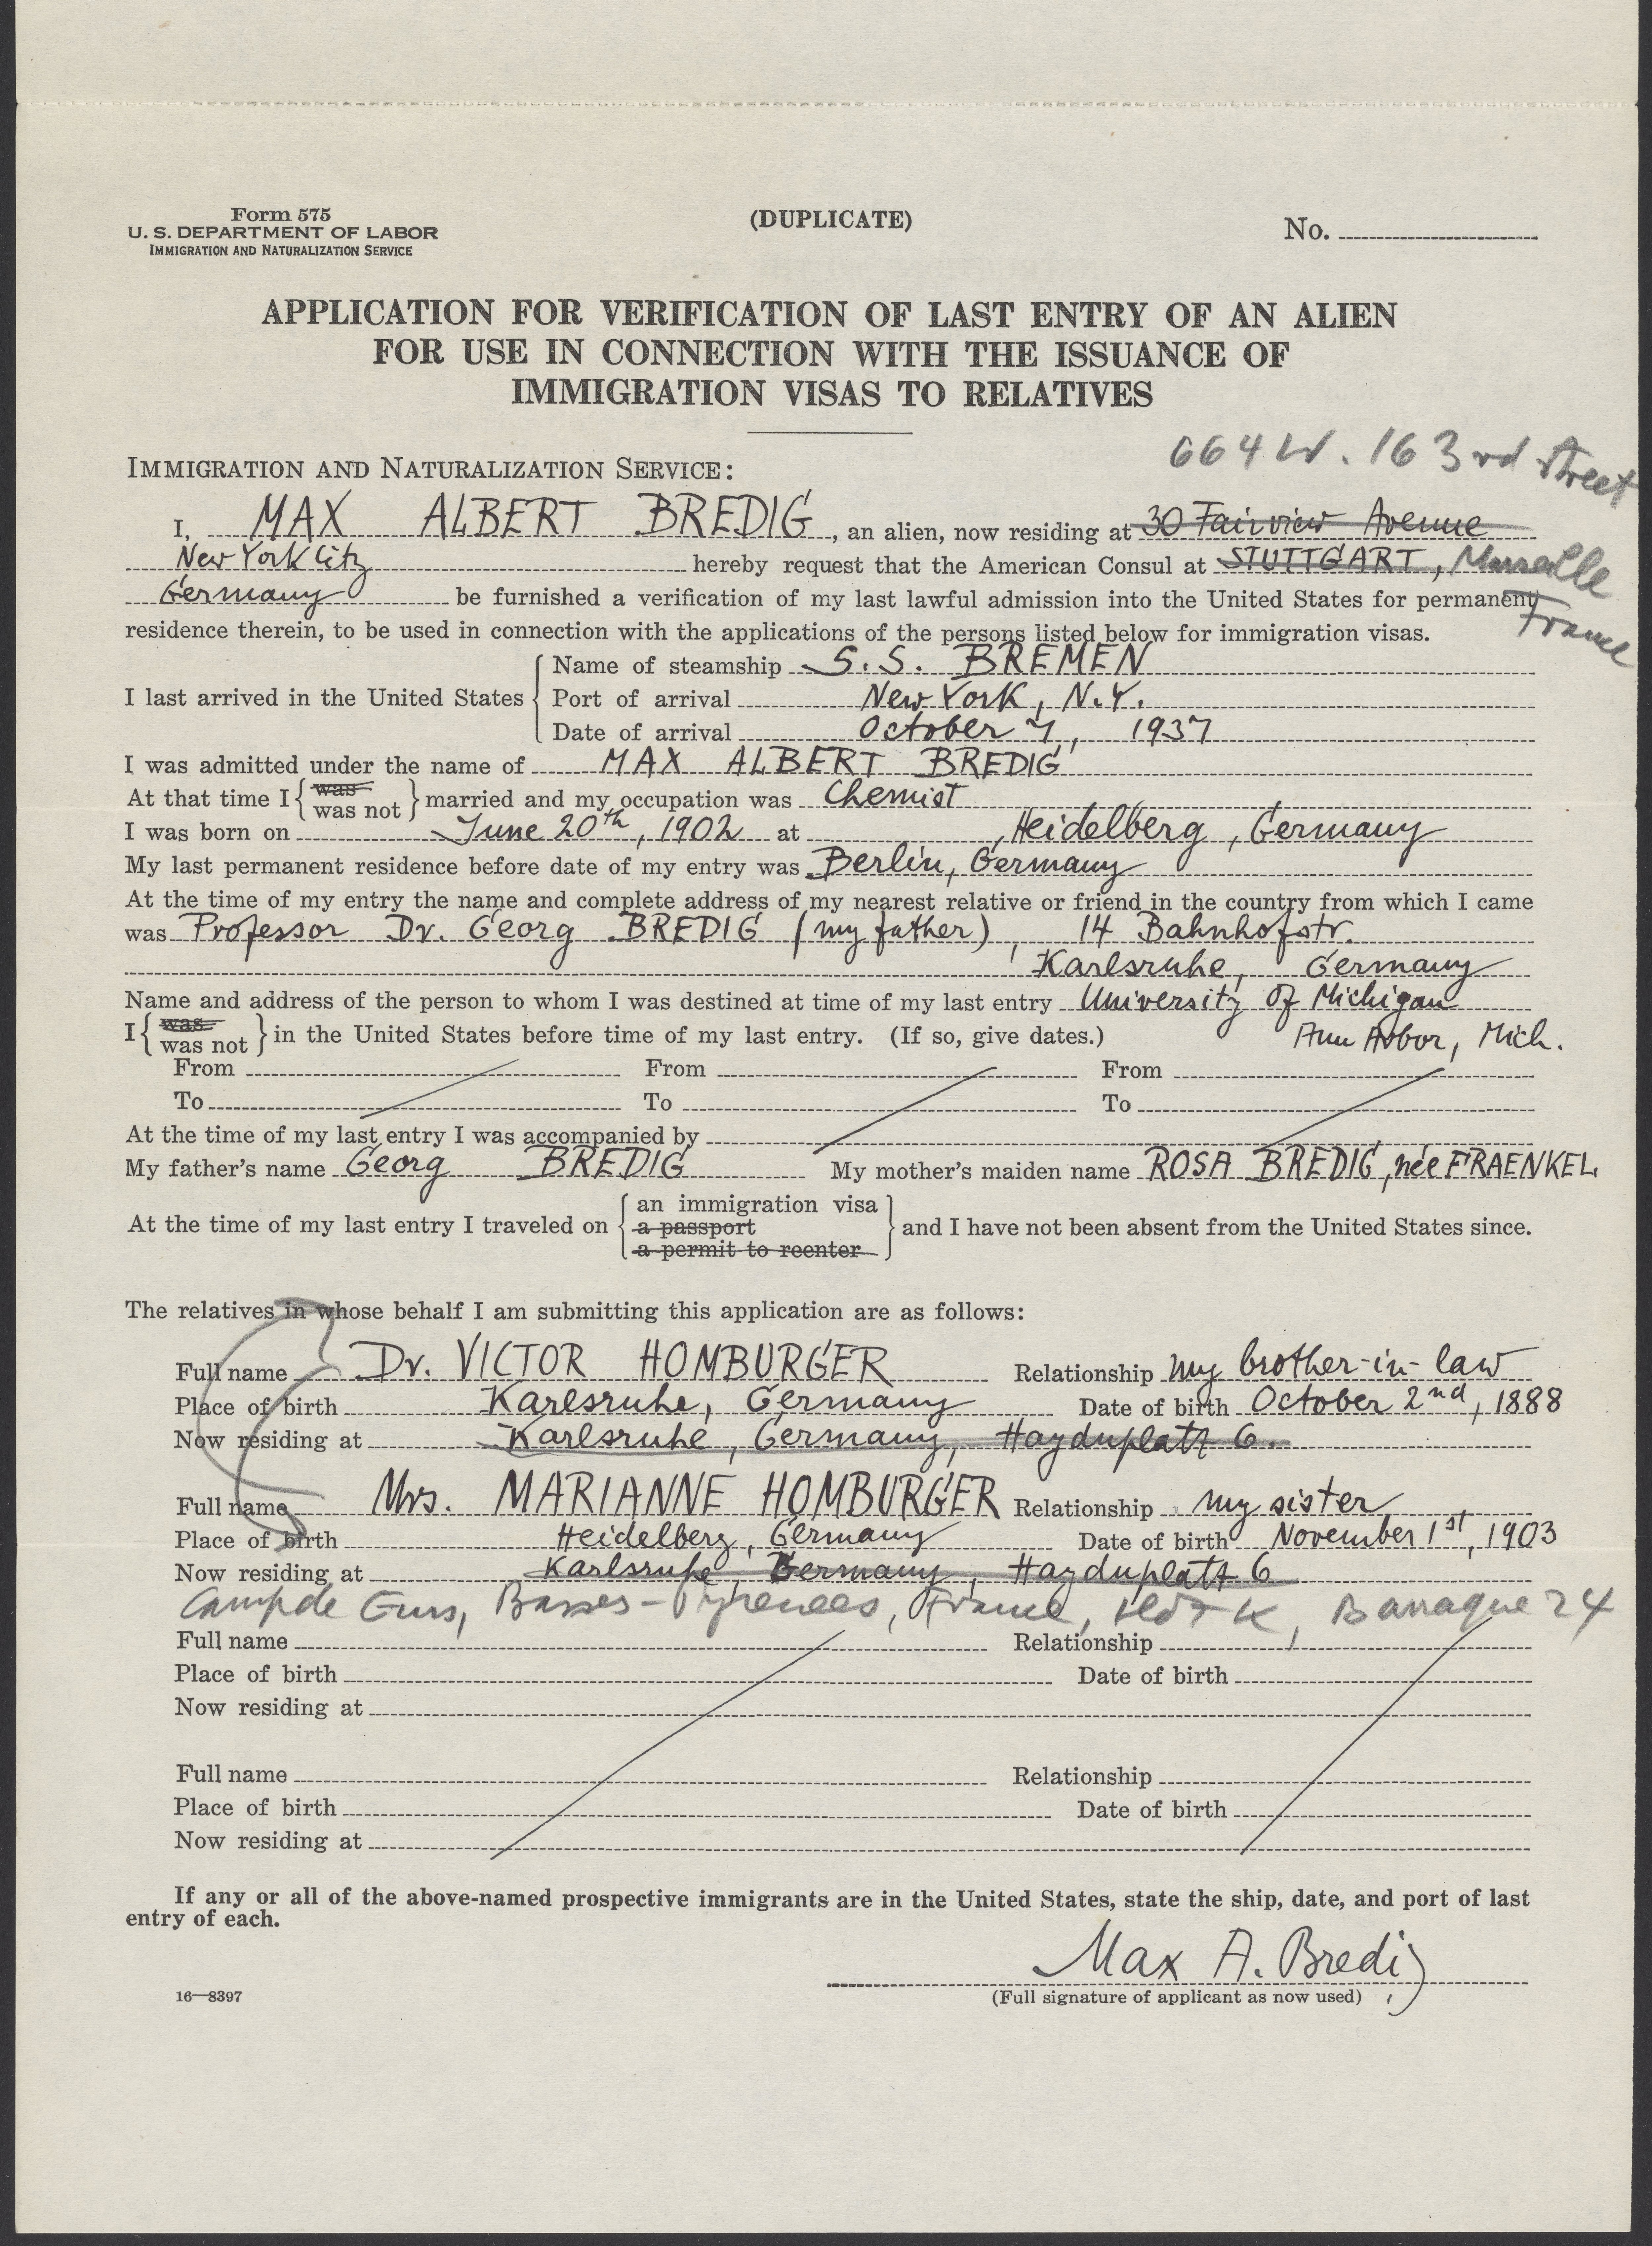 Form 575
U. S. DEPARTMENT OF LABOR
IMMIGRATION AND NATURALIZATION SERVICE
(DUPLICATE)
No.
APPLICATION FOR VERIFICATION OF LAST ENTRY OF AN ALIEN
FOR USE IN CONNECTION WITH THE ISSUANCE OF
IMMIGRATION VISAS TO RELATIVES
664 W. 163rd Street
IMMIGRATION AND NATURALIZATION SERVICE:
I, MAX ALBERT BREDIG, an alien, now residing at 30 Fairview Avenue
New York City hereby request that the American Consul at STUTTGART, Marseille
Germany be furnished a verification of my last lawful admission into the United States for permanent France
residence therein, to be used in connection with the applications of the persons listed below for immigration visas.
Name of steamship S.S. BREMEN
I last arrived in the United States Port of arrival New York, N.Y.
Date of arrival October 7, 1937
I was admitted under the name of MAX ALBERT BREDIG
At that time I { was was not } married and my occupation was Chemist
I was born on June 20th, 1902 at Heidelberg, Germany
My last permanent residence before date of my entry was Berlin, Germany
At the time of my entry the name and complete address of my nearest relative or friend in the country from which I came
was Professor Dr. Georg BREDIG (my father), 14 Bahnhofstr.
Karlsruhe, Germany
Name and address of the person to whom I was destined at time of my last entry University of Michigan
I { was was not } in the United States before time of my last entry. (If so, give dates.) Ann Arbor, Mich.
From From From
To To To
At the time of my last entry I was accompanied by
My father's name Georg BREDIG My mother's maiden name ROSA BREDIG, née FRAENKEL
an immigration visa
At the time of my last entry I traveled on a passport and I have not been absent from the United States since.
a permit to reenter
The relatives in whose behalf I am submitting this application are as follows:
Full name Dr. VICTOR HOMBURGER Relationship my brother-in-law
Place of birth Karlsruhe, Germany Date of birth October 2nd, 1888
Now residing at Karlsruhe, Germany, Haydnplatz 6.
Full name Mrs. MARIANNE HOMBURGER Relationship my sister
Place of birth Heidelberg, Germany Date of birth November 1st, 1903
Now residing at Karlsruhe, Germany, Haydnplatz 6
Camp de Gurs, Basses-Pyrenees, France, Ilôt K, Baraque 24
Full name Relationship
Place of birth Date of birth
Now residing at
Full name Relationship
Place of birth Date of birth
Now residing at
If any or all of the above-named prospective immigrants are in the United States, state the ship, date, and port of last
entry of each.
Max A. Bredig
16—8397
(Full signature of applicant as now used)